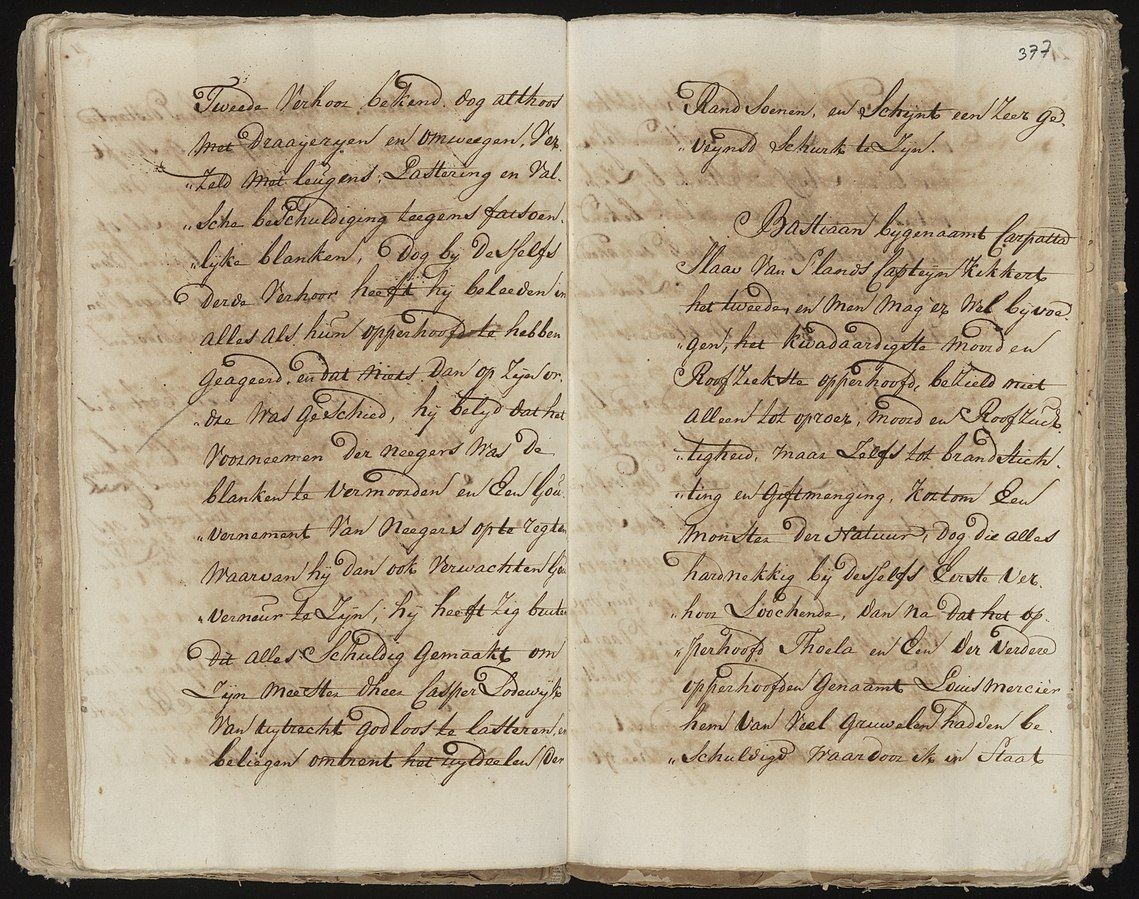 Tweede Verhoor bekend. dog althoos
Met Draayeryen en omweegen, Ver
„Zeld Met leugens, Lastering en Val-
„sche beschuldiging teegens fatsoen
„lijke blanken, Dog bij Desselfs
Derde Verhoor heeft hij beleeden in
alles als hun opperhoofd te hebben
Geageerd. en dat niets dan op Zijn or
„dre Was Geschied, hij belyd dat het
Voorneemen Der Neegers Was De
blanken te Vermoorden en Een Gou
„vernement Van Neegers op te regten
Waarvan hij dan ook Verwachten Gou
„verneur te Zijn, hij heeft Zig buiten
Dit alles Schuldig Gemaakt om
Zijn Meester Dheer Casper Lodewyk
Van Uytrecht Godloos te lasteren, en
beliegen omtrent het uytdeelen Der
377
Rand Soenen, en Schijnt een Zeer ge
„veynsd Schurk te Zyn.
Bastiaan bygenaamt Carpatta
Slaav Van Slands Capteijn Kikkert
het tweede, en Men Mag'er Wel bijvoe
„gen, het kwadaardigste Moord en
Roofziekste opperhoofd, bezield niet
alleen tot oproer, Moord en Roofzuck
„tigheid, Maar Zelfs tot brand Stich
„ting en Giftmenging, Kortom Een
Monster Der Natuur, Dog die alles
hardnekkig bij Desselfs Eerste Ver
„hoor Loochende, dan na dat het op
„perhoofd Thoela en Een der Verdere
opperhoofden Genaamt Louis Mercier
hem Van Veel Gruwelen hadden be
„Schuldigd Waardoor ik in Staat